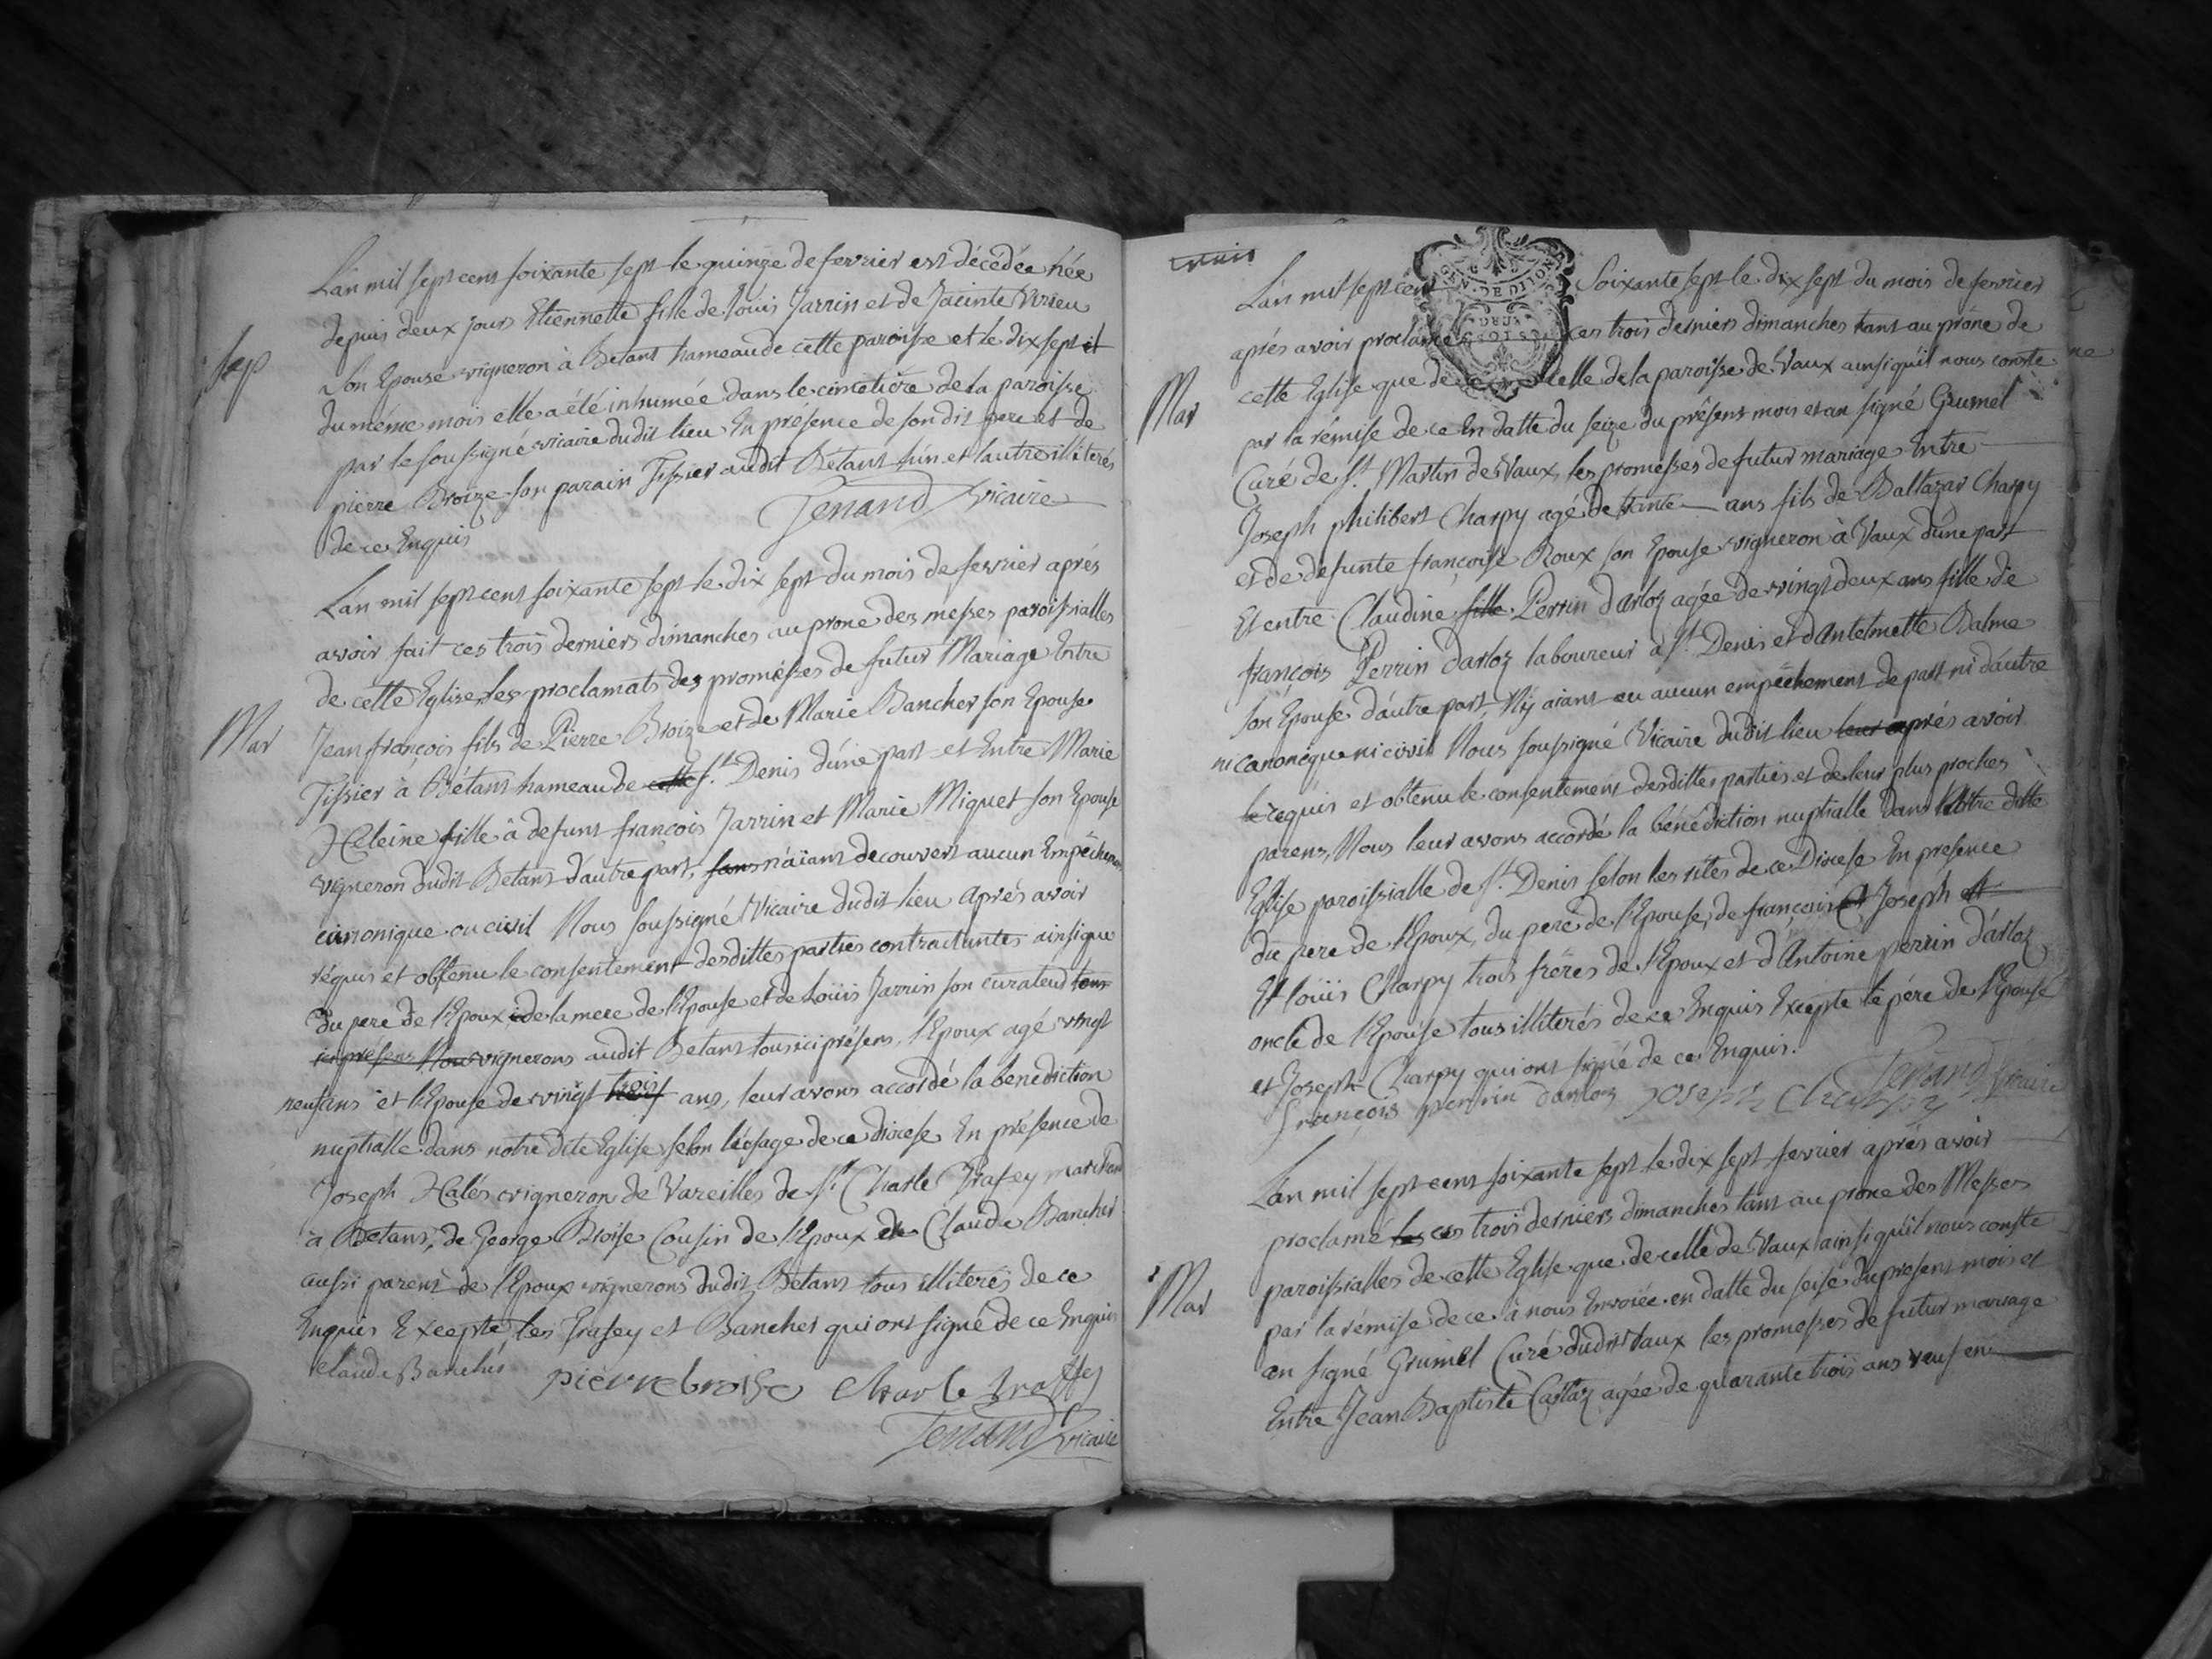 L'an mil sept cent soixante sept le quinze de fevrier est décédée née
depuis deux jours Etiennette fille de Loüis Jarrin et de Jacinte Virieu
Sep
son Epouse vigneron à Betant hameau de cette paroisse et le dix sept
du même mois elle a été inhumée dans le cimetière de la paroisse
par le soussigné vicaire dudit lieu En présence de son dit pere et de
pierre Broize son parain Tissier audit Bétant l'un et l'autre illiterés
de ce Enquis Tenand Vicaire
L'an mil sept cent soixante sept le dix sept du mois de fevrier aprés
avoir fait ces trois derniers dimanches au prone des messes paroissialles
de cette Eglise les proclamats des promesses de futur Mariage Entre
Mar
Jean françois fils de Pierre Broize et de Marie Bancher son Epouse
Tissier à Bétant hameau de cette St Denis d'une part et Entre Marie
Heleine fille à defunt françois Jarrin et Marie Miguet son Epouse
vigneron dudit Betant d'autre part, sans n'aïant decouvert aucun Empêchement
canonique ou civil Nous soussigné Vicaire dudit lieu Aprés avoir
réquis et obtenu le consentement desdittes parties contractantes ainsi que
du pere de l'Epoux de la mere de l'Epouse et de Loüis Jarrin son curateur tous
ici présens Nous vignerons audit Betant tous ici présens, l'Epoux agé vingt
neuf ans et l'Epouse de vingt trois ans, leur avons accordé la benediction
nuptialle dans notre dite Eglise selon l'usage de ce diocese En présence de
Joseph Halés vigneron de Vareilles de Sr Charle Trafey marchand
à Betant, de George Broise Cousin de l'Epoux de Claude Bancher
aussi parent de l'Epoux vignerons dudit Betant tous illiterés de ce
Enquis Excepté les Trafey et Bancher qui ont signé de ce Enquis
Claude Banchés pierre broise Charle Traffey
Tenand Vicaire
L'an mil sept cent Soixante sept le dix sept du mois de fevrier
GEN. DE DIJON
DEUX
aprés avoir proclamé ces trois derniers dimanches tant au prône de
cette Eglise que de celle de la paroisse de Vaux ainsi qu'il nous conste
Mar
par la rémise de ce En datte du seize du présent mois et an signé Grumel
Curé de St Martin de Vaux, les promesses de futur mariage Entre
Joseph philibert Charpy agé de trente ans fils de Baltazar Charpy
et de defunte françoise Roux son Epouse vigneron à Vaux d'une part
Et entre Claudine fille Perrin d'arloz agée de vingt deux ans fille de
françois Perrin d'arloz laboureur à St Denis et d'Antelmette Balme
son Epouse d'autre part, N'y aiant eu aucun empêchement de part ni d'autre
ni canonique ni civil Nous soussigné Vicaire dudit lieu leur aprés avoir
le requis et obtenu le consentement desdittes parties et de leur plus proches
parens, Nous leur avons accordé la bénédiction nuptialle dans notre ditte
Eglise paroissialle de St Denis selon les rites de ce Diocese En presence
du pere de l'Epoux, du pere de l'Epouse, de françois et Joseph et
Et Loüis Charpy trois fréres de l'Epoux et d'Antoine perrin d'arloz
oncle de l'Epouse tous illiterés de ce Enquis Excepté le pére de l'Epouse
et Joseph Charpy qui ont signé de ce Enquis. Tenand Vicaire
François perrin darloz Joseph Charpy
L'an mil sept cent soixante sept le dix sept fevrier aprés avoir
proclamé les ces trois derniers dimanches tant au prone des Messes
paroissialles de cette Eglise que de celle de Vaux ainsi qu'il nous conste
Mar
par la rémise de ce à nous Envoiée en datte du seise du present mois et
an signé Grumel Curé dudit Vaux les promesses de futur mariage
Entre Jean Baptiste Castaz agée de quarante trois ans veuf en